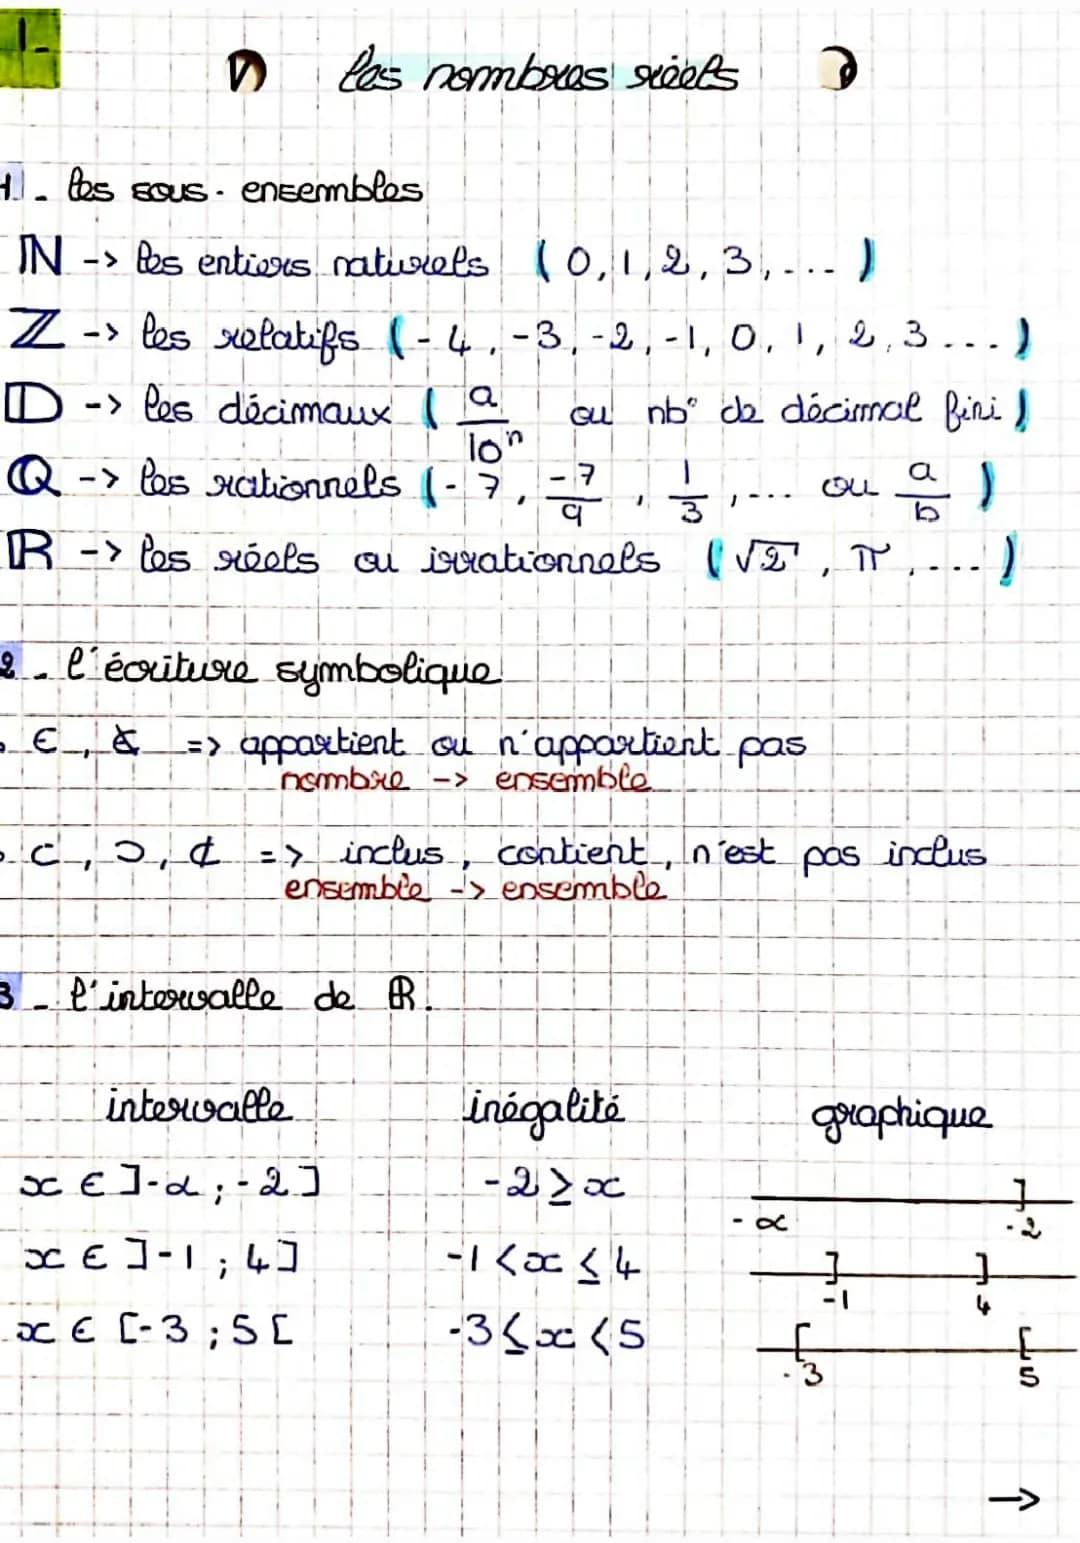 1-
Les nombres réels
1 - les sous-ensembles
ℕ -> les entiers naturels (0, 1, 2, 3, ...)
ℤ -> les relatifs (-4, -3, -2, -1, 0, 1, 2, 3 ...)
𝔻 -> les décimaux (a/10ⁿ ou nb° de décimal fini)
ℚ -> les rationnels (-7, -7/9, 1/3, ... ou a/b)
ℝ -> les réels ou irrationnels (√2, π, ...)
2 - l'écriture symbolique
∈, ∉ => appartient ou n'appartient pas
nombre -> ensemble
⊂, ⊃, ⊄ => inclus, contient, n'est pas inclus
ensemble -> ensemble
3 - l'intervalle de ℝ.
intervalle inégalité graphique
x ∈ ]-∝ ; -2] -2 ≥ x -∝ ] -2
x ∈ ]-1 ; 4] -1 < x ≤ 4 ] -1 ] 4
x ∈ [-3 ; 5[ -3 ≤ x < 5 [ -3 [ 5
->